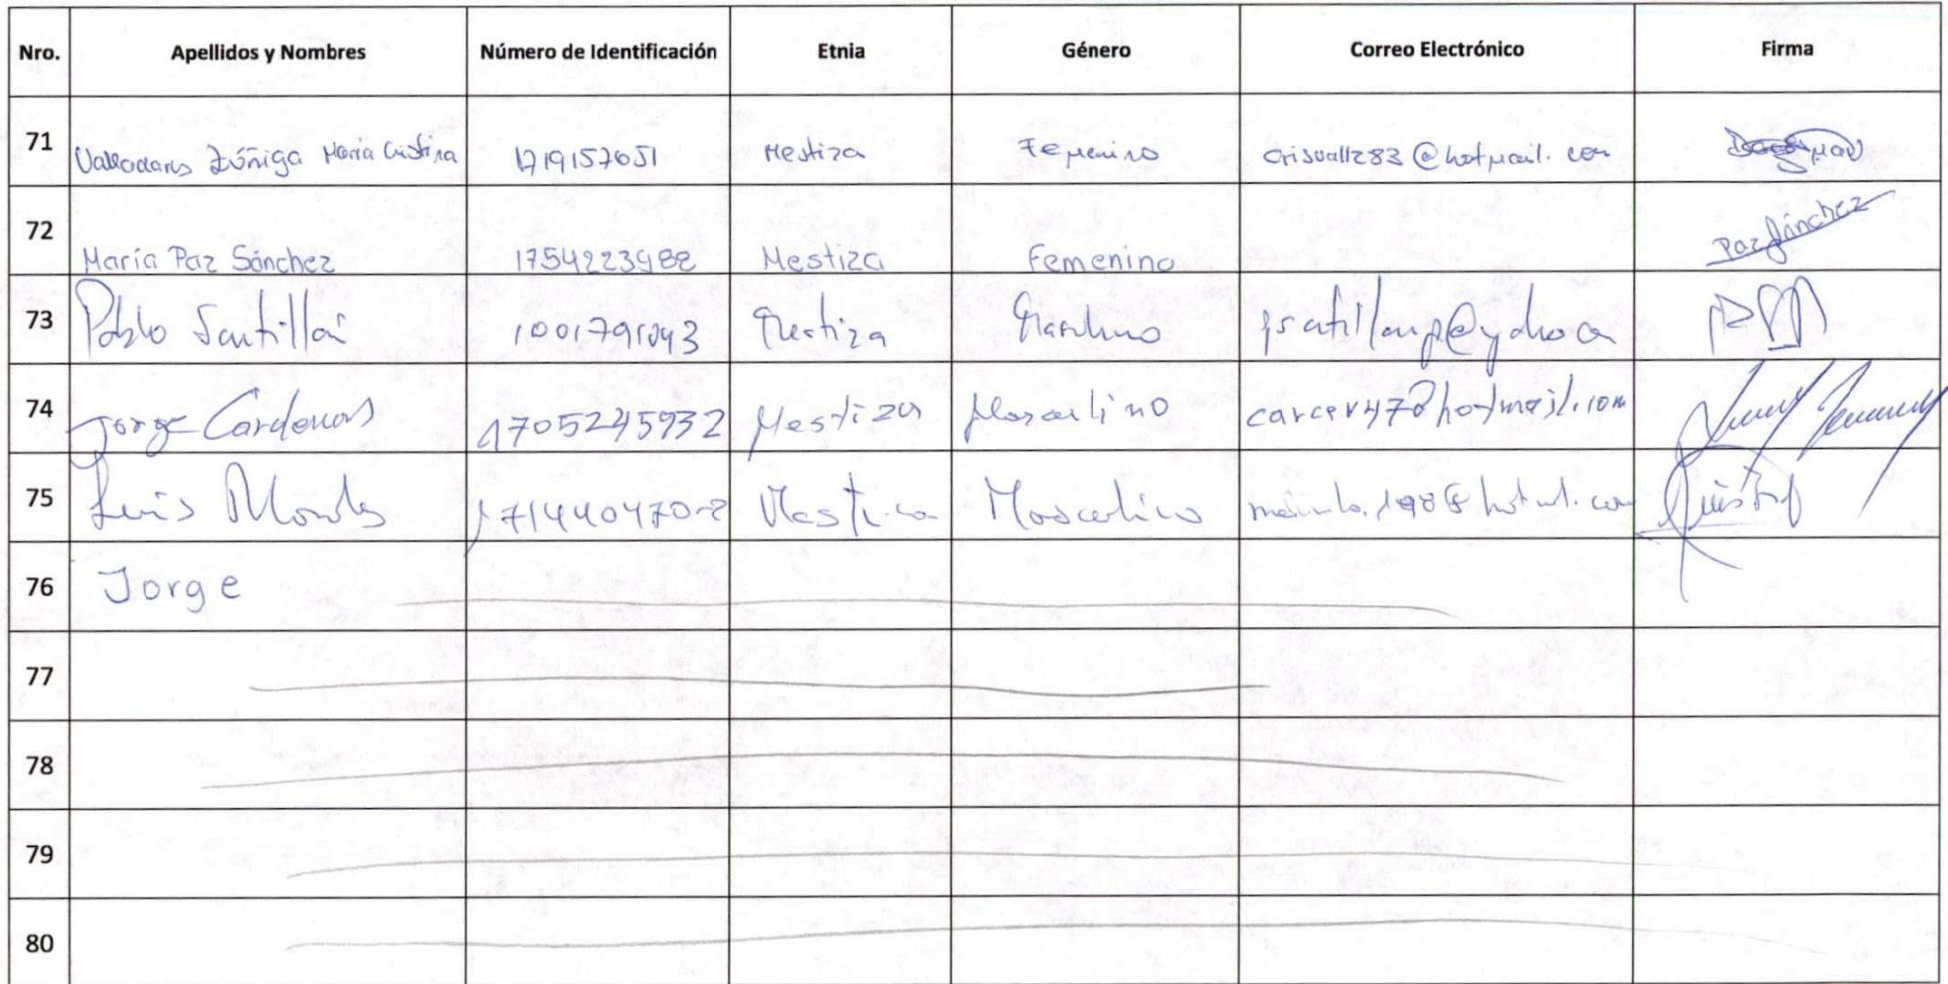 Nro. Apellidos y Nombres Número de Identificación Etnia Género Correo Electrónico Firma
71 Valladares Zúñiga María Cristina 1719157651 Mestiza Femenino crisvallz83@hotmail.com
72 María Paz Sánchez 1754223982 Mestiza Femenino Paz Sánchez
73 Pablo Santillán 1001791043 Mestiza
74 Jorge Cárdenas 1705245932 Mestiza Masculino
75 Luis 171440470-2 Mestiza Masculino
76 Jorge
77
78
79
80